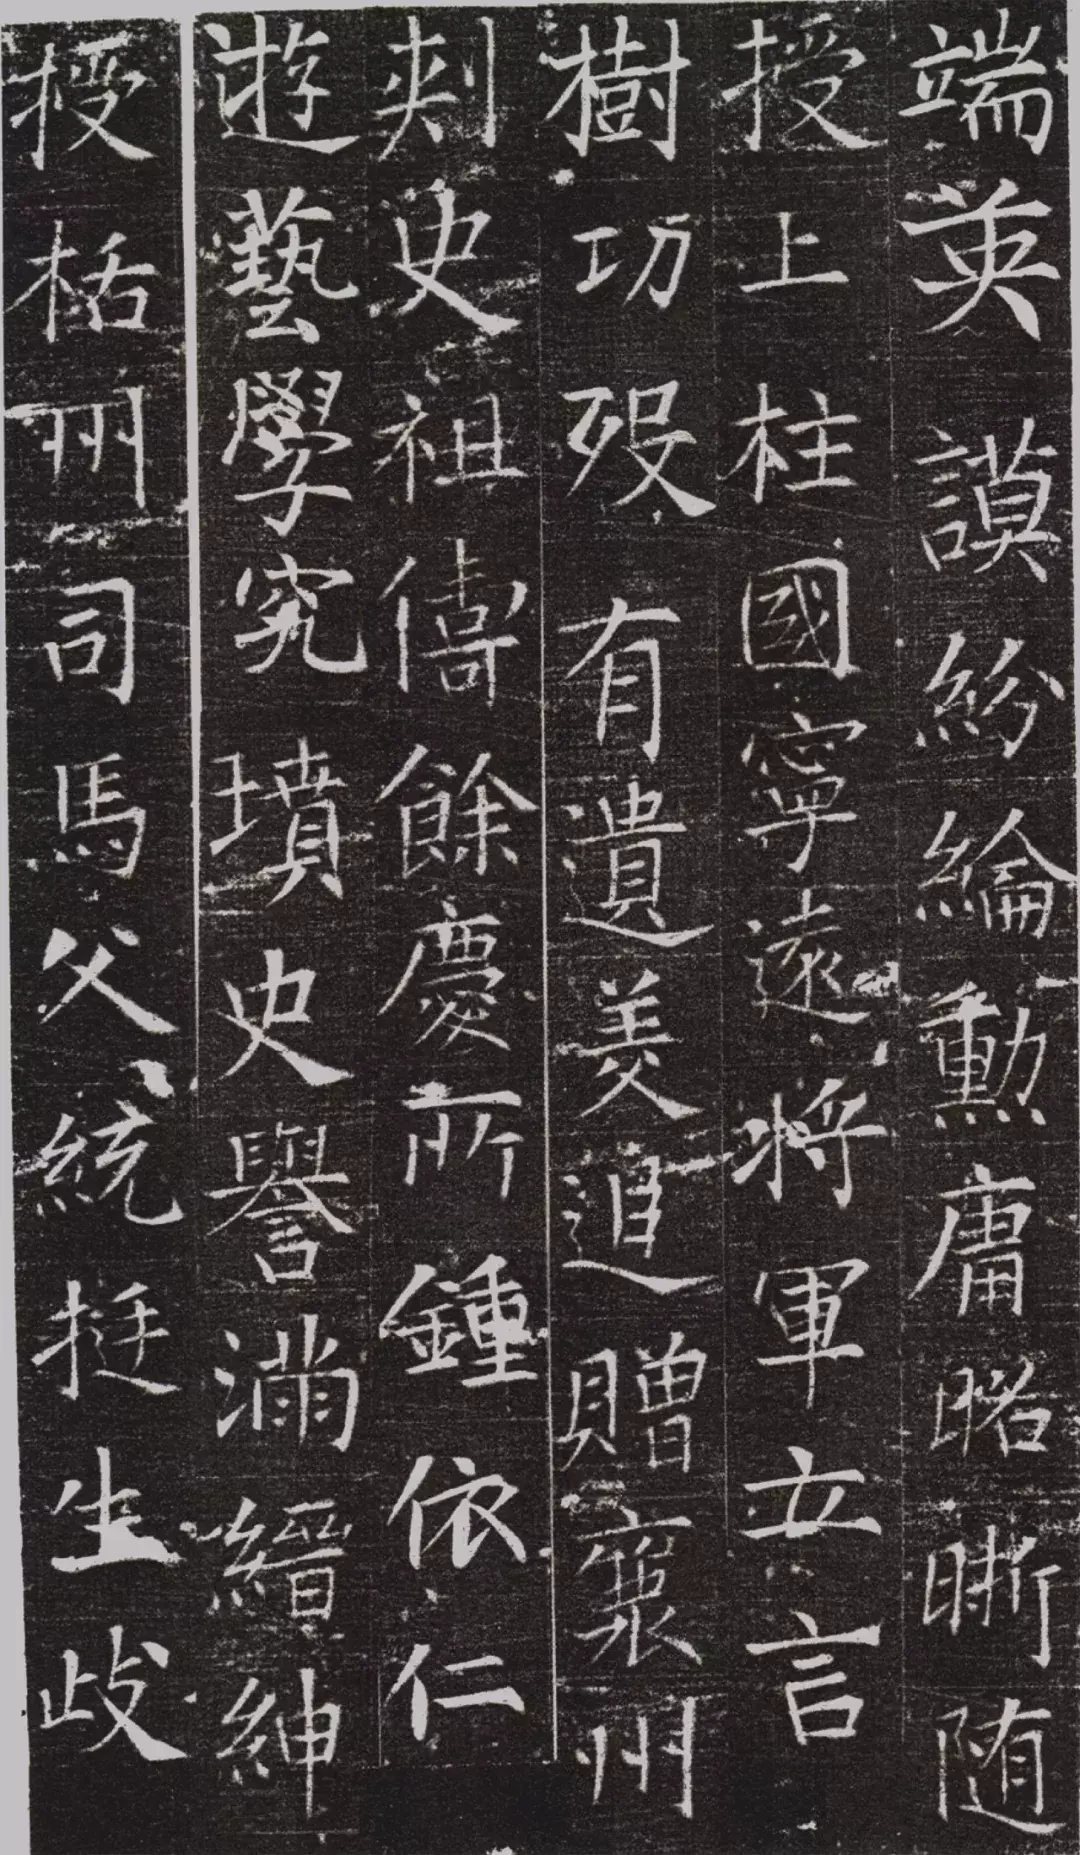 端英謨紛綸勳庸昭晣随
授上柱國寧遠將軍立言
樹功歿有遺美追贈襄州
刺史祖儔餘慶所鍾依仁
遊藝學究墳史譽滿縉紳
授栝州司馬父統挺生歧